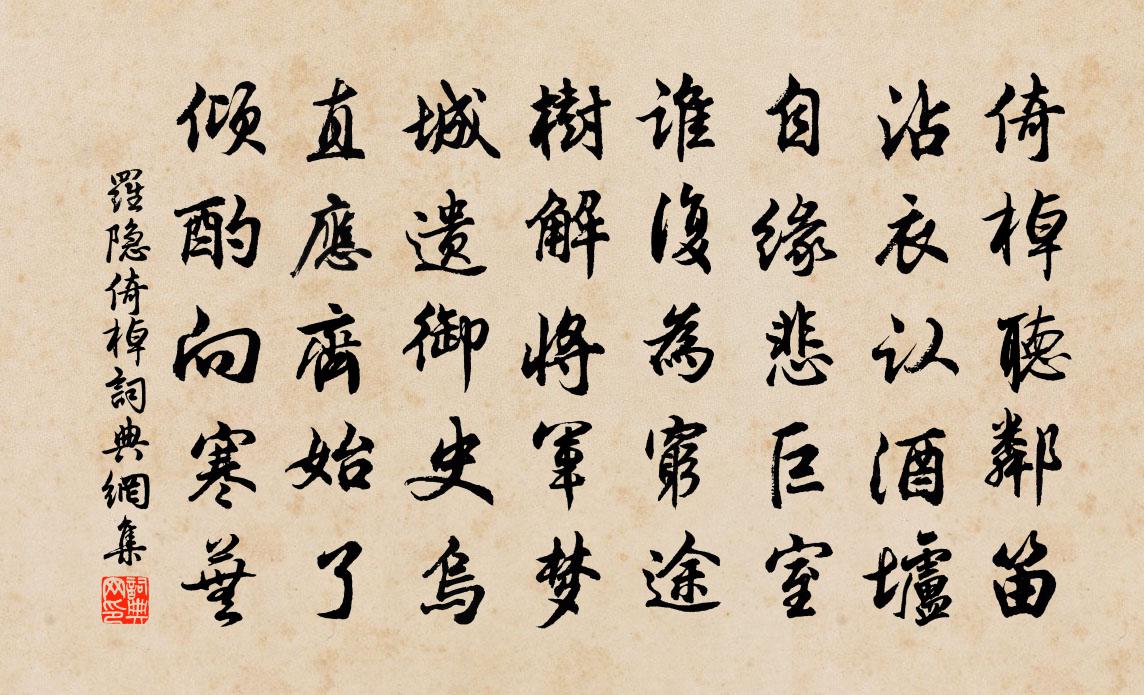 倚棹聽鄰笛
沾衣认酒壚
自緣悲巨室
谁復為窮途
樹解將軍梦
城遗御史烏
直應齊始了
倾酌向寒蕪
羅隐倚棹詞典網集
詞典网印